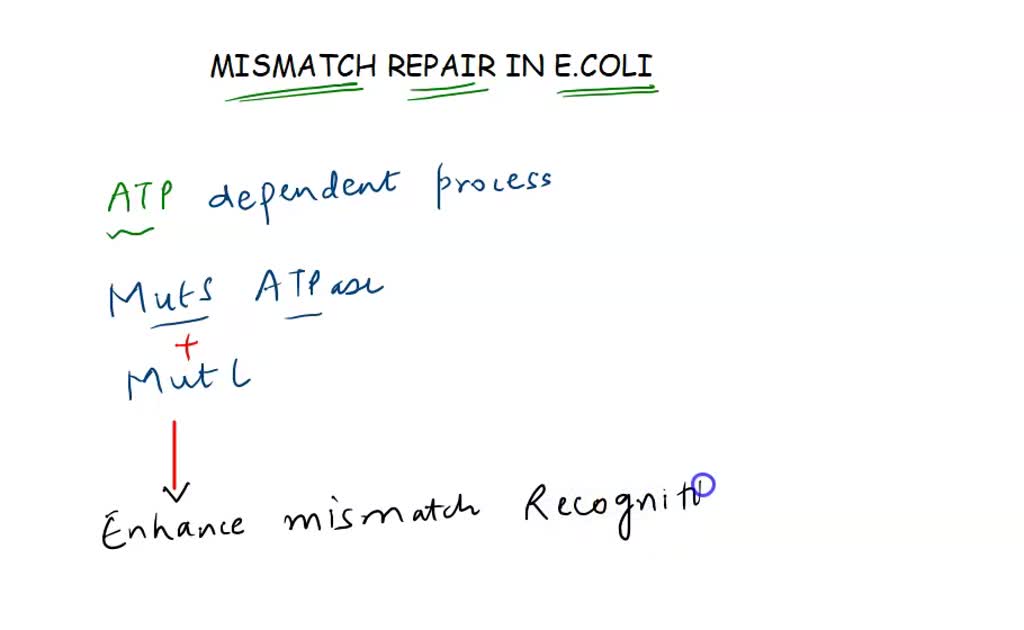 MISMATCH REPAIR IN E.COLI
ATP dependent process
MutS ATPase
+
MutL
Enhance mismatch Recogniti